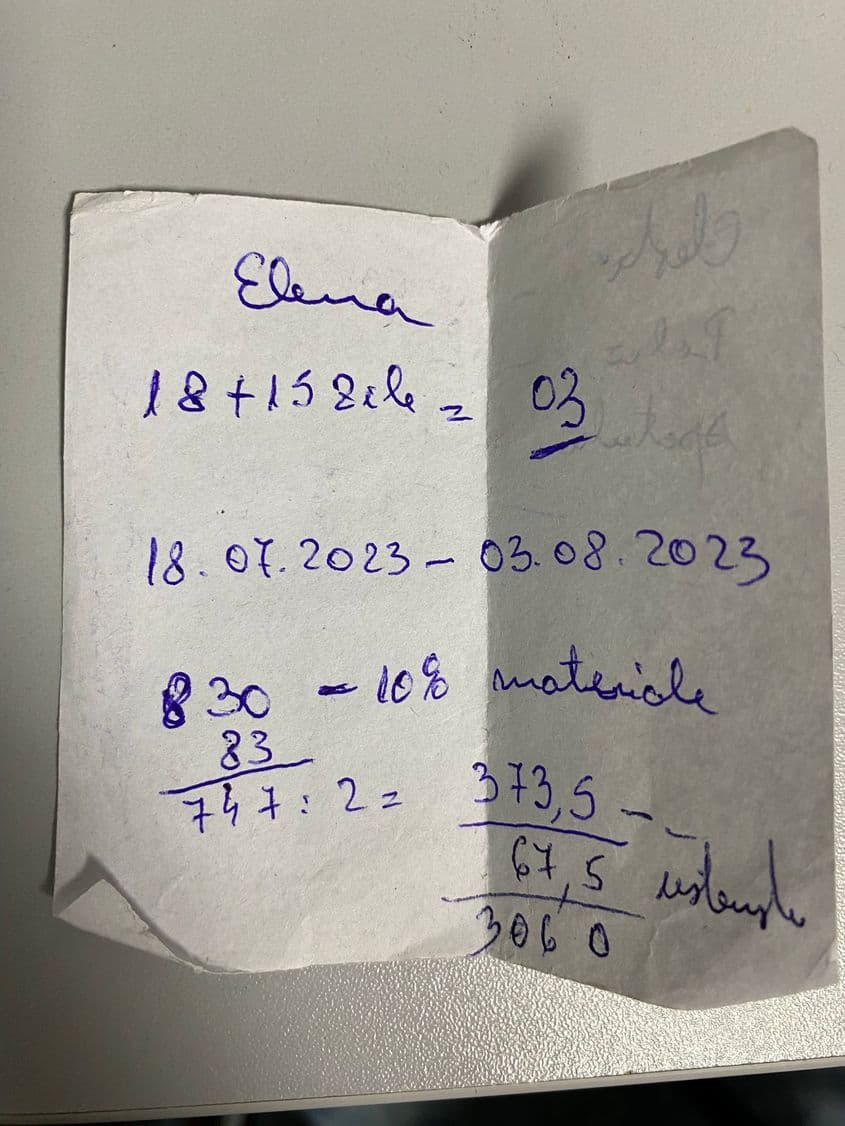 Elena
18+15 zile = 03
18.07.2023 - 03.08.2023
830 - 10% materiale
83
747 : 2 = 373,5 -
67,5
306 0